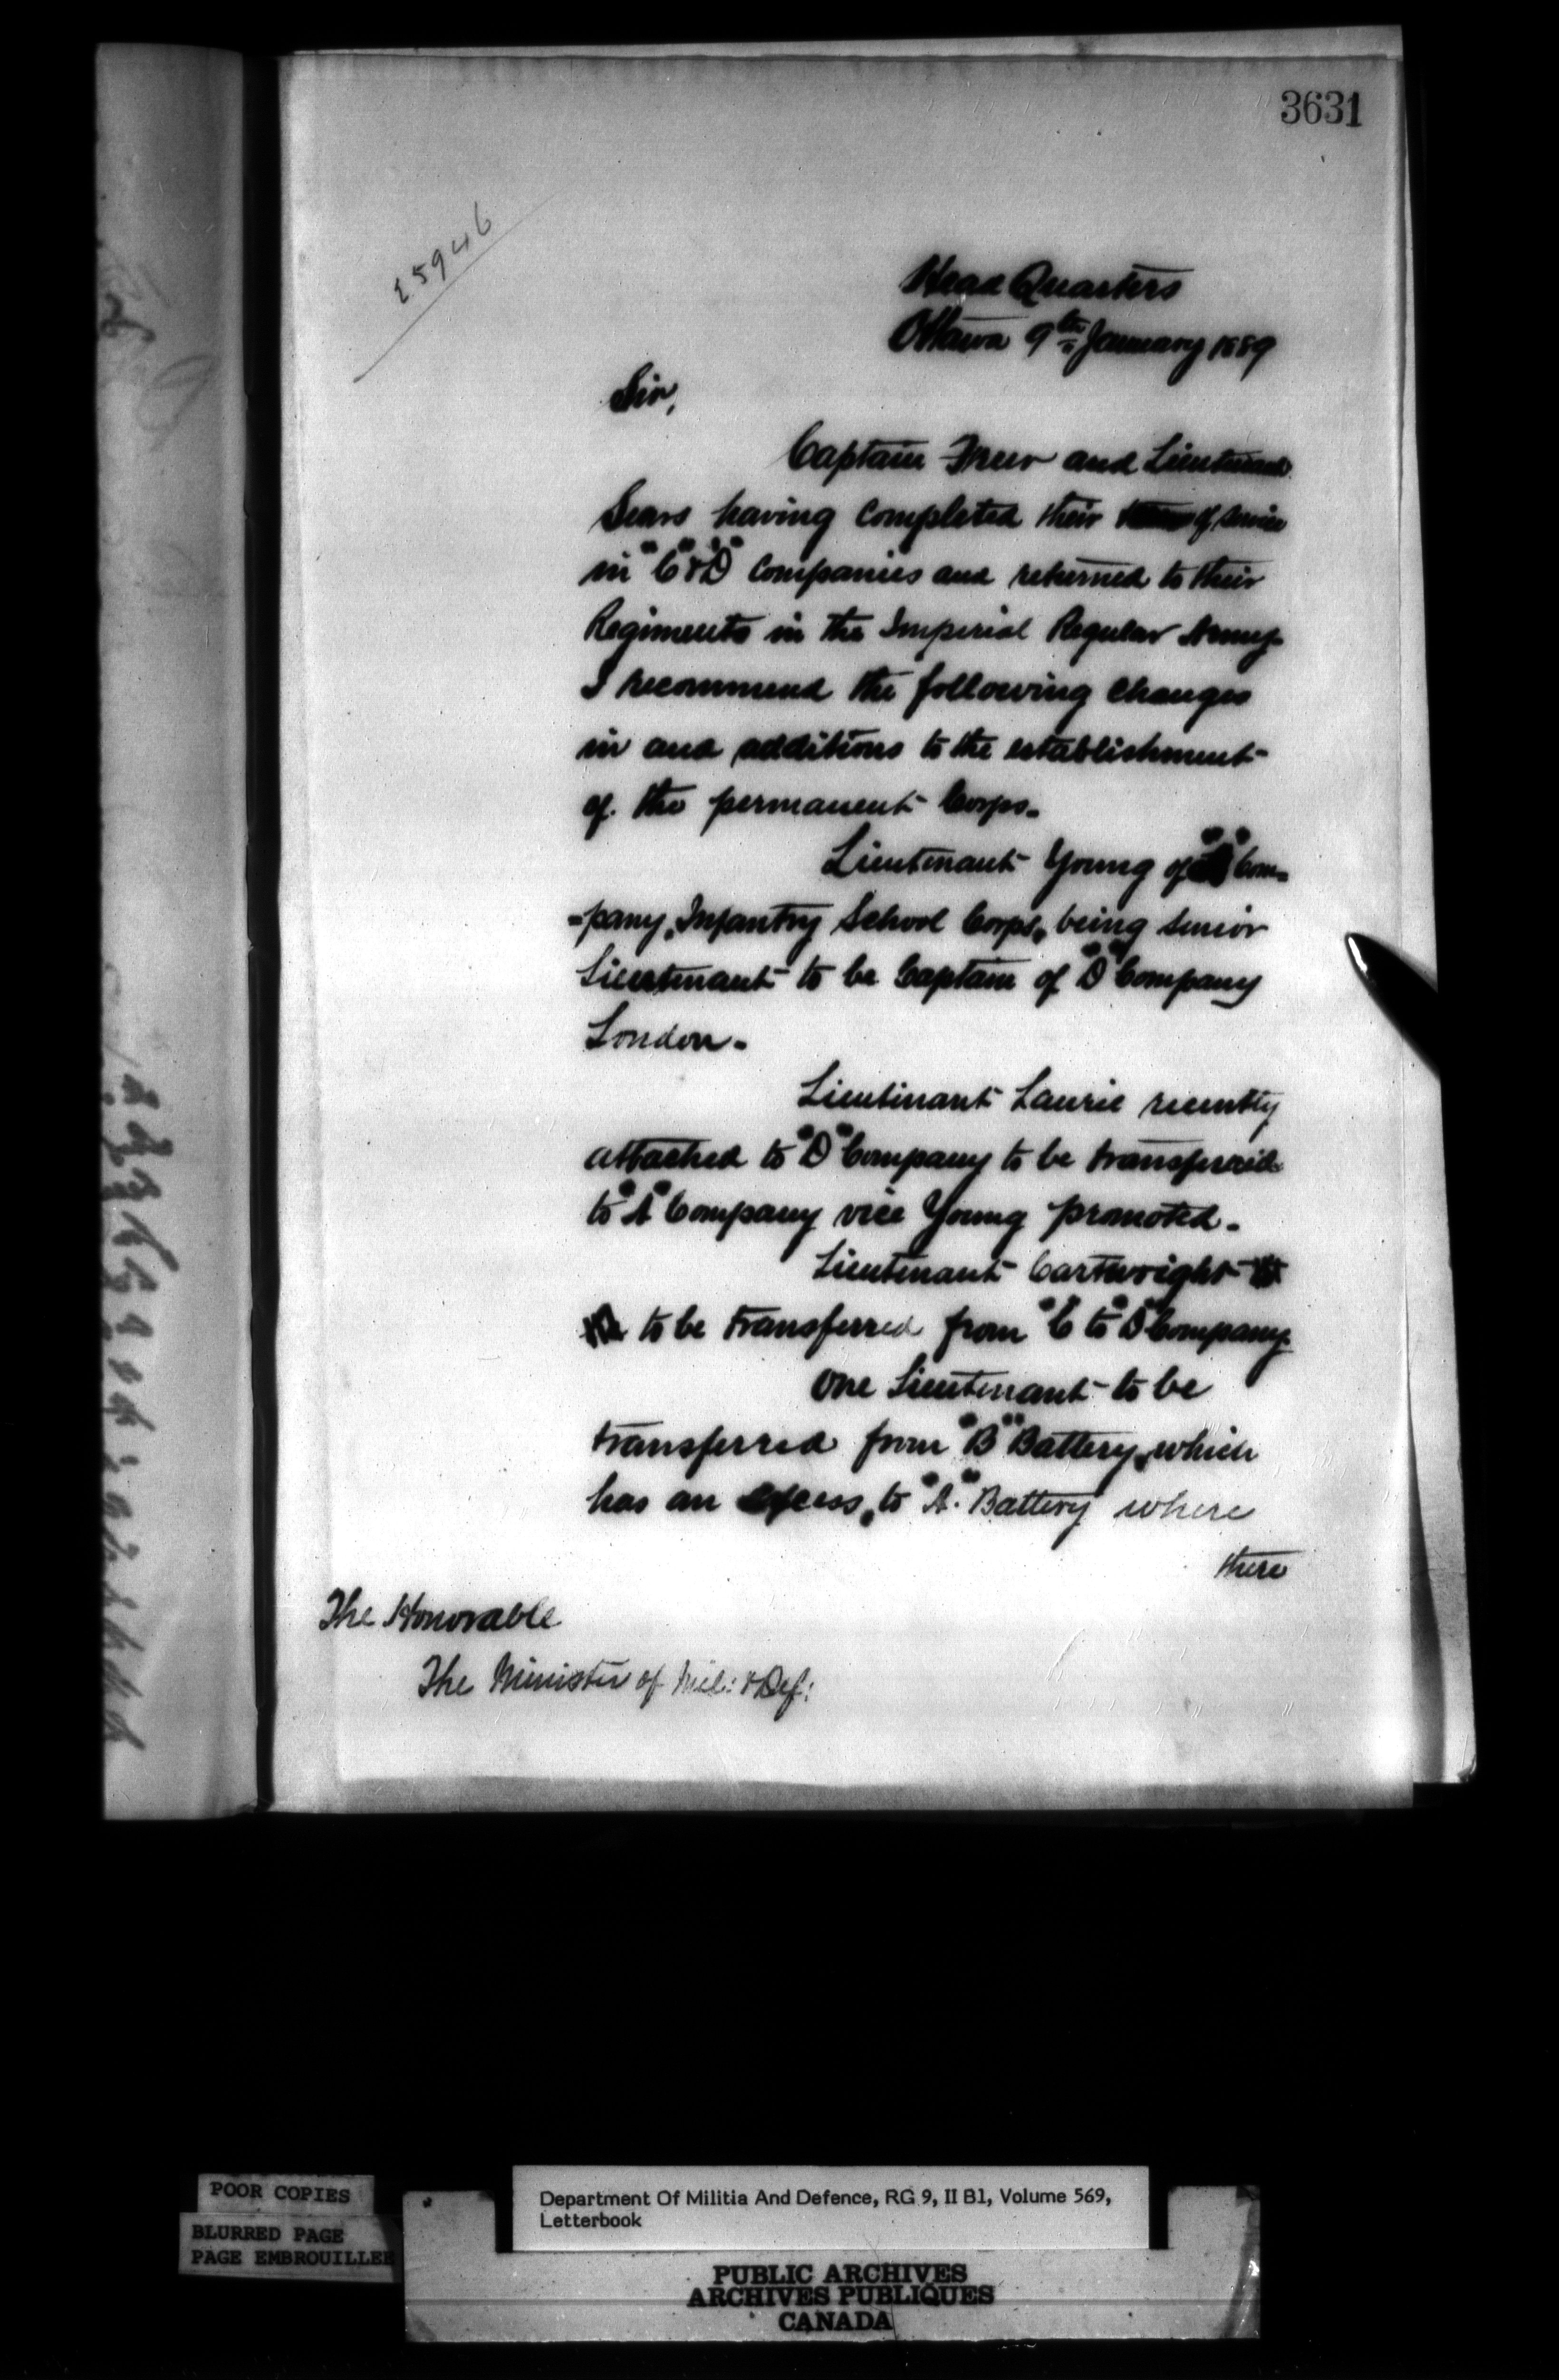 3631
25946
Head Quarters
Ottawa 9th January 1889
Sir,
Captain Freer and Lieutenant
Sears having completed their term of service
in "C" & "D" Companies and returned to their
Regiments in the Imperial Regular Army
I recommend the following changes
in and additions to the establishment
of the permanent Corps.
Lieutenant Young of "A" Com-
-pany, Infantry School Corps, being senior
Lieutenant to be Captain of "D" Company
London.
Lieutenant Laurie recently
attached to "D" Company to be transferred
to "A" Company vice Young promoted.
Lieutenant Cartwright
to be transferred from "C" to "D" Company
One Lieutenant to be
transferred from "B" Battery, which
has an excess, to "A" Battery where
there
The Honorable
The Minister of Mil: & Def:
POOR COPIES
BLURRED PAGE
PAGE EMBROUILLEE
Department Of Militia And Defence, RG 9, II B1, Volume 569,
Letterbook
PUBLIC ARCHIVES
ARCHIVES PUBLIQUES
CANADA